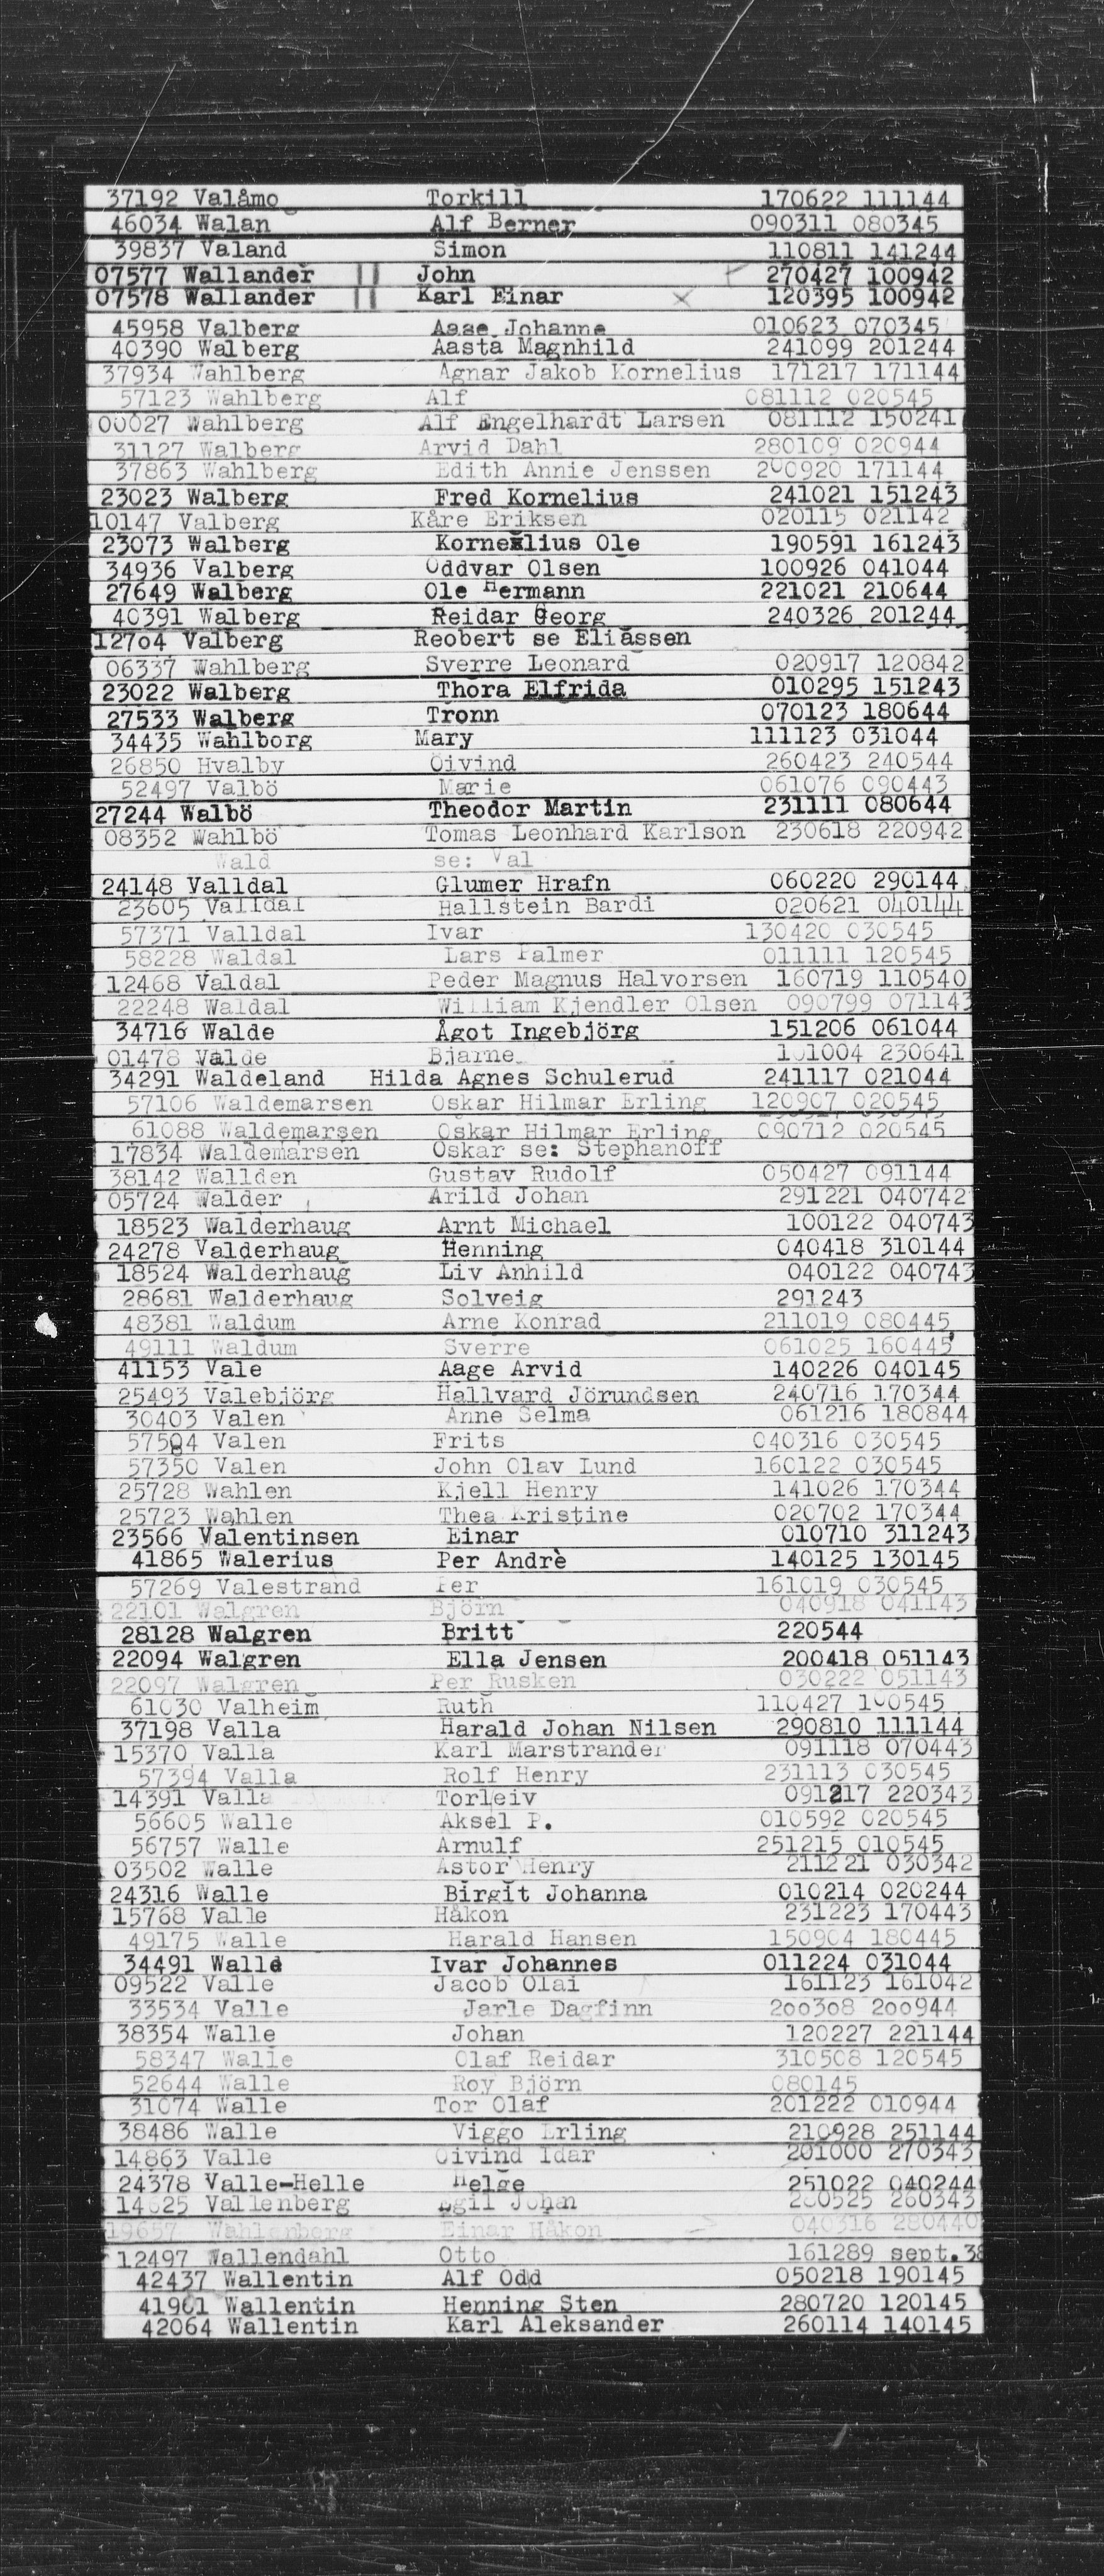 37192 Valåmo Torkill 170622 111144
46034 Walan Alf Berner 090311 080345
39837 Valand Simon 110811 141244
07577 Wallander || John 270427 100942
07578 Wallander || Karl Einar x 120395 100942
45958 Valberg Aase Johanne 010623 070345
40390 Walberg Aasta Magnhild 241099 201244
37934 Wahlberg Agnar Jakob Kornelius 171217 171144
57123 Wahlberg Alf 081112 020545
00027 Wahlberg Alf Engelhardt Larsen 081112 150241
31127 Walberg Arvid Dahl 280109 020944
37863 Wahlberg Edith Annie Jenssen 171144
23023 Walberg Fred Kornelius 241021 151243
10147 Valberg Kåre Eriksen 020115 021142
23073 Walberg Kornexlius Ole 190591 161243
34936 Valberg Oddvar Olsen 100926 041044
27649 Walberg Ole Hermann 221021 210644
40391 Walberg Reidar Georg 240326 201244
12704 Valberg Reobert se Eliassen
06337 Wahlberg Sverre Leonard 020917 120842
23022 Walberg Thora Elfrida 010295 151243
27533 Walberg Tronn 070123 180644
34435 Wahlborg Mary 111123 031044
26850 Hvalby Öivind 260423 240544
52497 Valbö Marie 061076 090443
27244 Walbö Theodor Martin 231111 080644
08352 Wahlbö Tomas Leonhard Karlson 230618 220942
Wald se: Val
24148 Valldal Glumer Hrafn 060220 290144
23605 Valldal Hallstein Bardi 020621 040144
57371 Valldal Ivar 130420 030545
58228 Waldal Lars Palmer 011111 120545
12468 Valdal Peder Magnus Halvorsen 160719 110540
22248 Waldal William Kjendler Olsen 090799 071143
34716 Walde Ågot Ingebjörg 151206 061044
01478 Valde Bjarne 230641
34291 Waldeland Hilda Agnes Schulerud 241117 021044
57106 Waldemarsen Oskar Hilmar Erling 120907 020545
61088 Waldemarsen Oskar Hilmar Erling 090712 020545
17834 Waldemarsen Oskar se: Stephanoff
38142 Wallden Gustav Rudolf 050427 091144
05724 Walder Arild Johan 291221 040742
18523 Walderhaug Arnt Michael 100122 040743
24278 Valderhaug Henning 040418 310144
18524 Walderhaug Liv Anhild 040122 040743
28681 Walderhaug Solveig 291243
48381 Waldum Arne Konrad 211019 080445
49111 Waldum Sverre 061025 160445
41153 Vale Aage Arvid 140226 040145
25493 Valebjörg Hallvard Jörundsen 240716 170344
30403 Valen Anne Selma 061216 180844
Valen Frits 040316 030545
57350 Valen John Olav Lund 160122 030545
25728 Wahlen Kjell Henry 141026 170344
25723 Wahlen Thea Kristine 020702 170344
23566 Valentinsen Einar 010710 311243
41865 Walerius Per Andrè 140125 130145
57269 Valestrand Per 161019 030545
22101 Walgren Björn 040918 041143
28128 Walgren Britt 220544
22094 Walgren Ella Jensen 200418 051143
22097 Walgren Per Rusken 030222 051143
61030 Valheim Ruth 110427
37198 Valla Harald Johan Nilsen 290810 111144
15370 Valla Karl Marstrander 091118 070443
57394 Valla Rolf Henry 231113 030545
14391 Valla Torleiv 091217 220343
56605 Walle Aksel P. 010592 020545
56757 Walle Arnulf 251215 010545
03502 Walle Astor Henry 211221 030342
24316 Walle Birgit Johanna 010214 020244
15768 Valle Håkon 231223 170443
49175 Walle Harald Hansen 150904 180445
34491 Walle Ivar Johannes 011224 031044
09522 Valle Jacob Olai 161123 161042
33534 Valle Jarle Dagfinn 200308 200944
38354 Walle Johan 120227 221144
58347 Walle Olaf Reidar 310508 120545
52644 Walle Roy Björn 080145
31074 Walle Tor Olaf 201222 010944
38486 Walle Viggo Erling 210928 251144
14863 Valle Öivind Idar 201000 270343
24378 Valle-Helle Helge 251022 040244
Vallenberg Egil Johan 260343
19657 Wahlenberg Einar Håkon 040316 280440
12497 Wallendahl Otto 161289 sept.38
42437 Wallentin Alf Odd 050218 190145
41961 Wallentin Henning Sten 280720 120145
42064 Wallentin Karl Aleksander 260114 140145